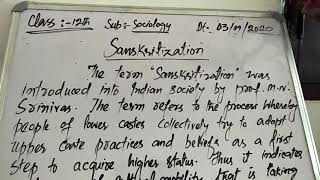 Class :- 12th Sub:- Sociology Dt:- 03/09/2020
Sanskritization
The term "Sanskritization" was
introduced into Indian Society by prof. M.N.
Srinivas. The term refers to the process whereby
people of lower castes collectively try to adopt
upper caste practices and beliefs as a first
step to acquire higher status. Thus it indicates
mobility that is taking